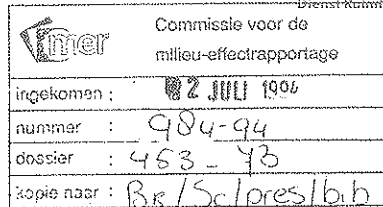 Dienst
mer
Commissie voor de
milieu-effectrapportage
ingekomen : 2 JULI 1996
nummer : 984-94
dossier : 463 - 43
kopie naar : BR/Sc/pres/bib